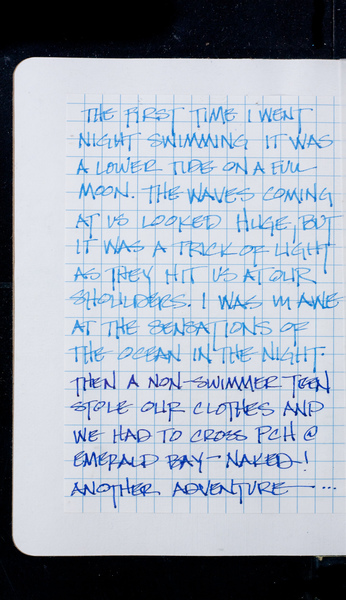 THE FIRST TIME I WENT
NIGHT SWIMMING IT WAS
A LOWER TIDE ON A FULL
MOON. THE WAVES COMING
AT US LOOKED HUGE, BUT
IT WAS A TRICK OF LIGHT
AS THEY HIT US AT OUR
SHOULDERS. I WAS IN AWE
AT THE SENSATIONS OF
THE OCEAN IN THE NIGHT.
THEN A NON-SWIMMER TEEN
STOLE OUR CLOTHES AND
WE HAD TO CROSS PCH @
EMERALD BAY - NAKED!
ANOTHER ADVENTURE — ...